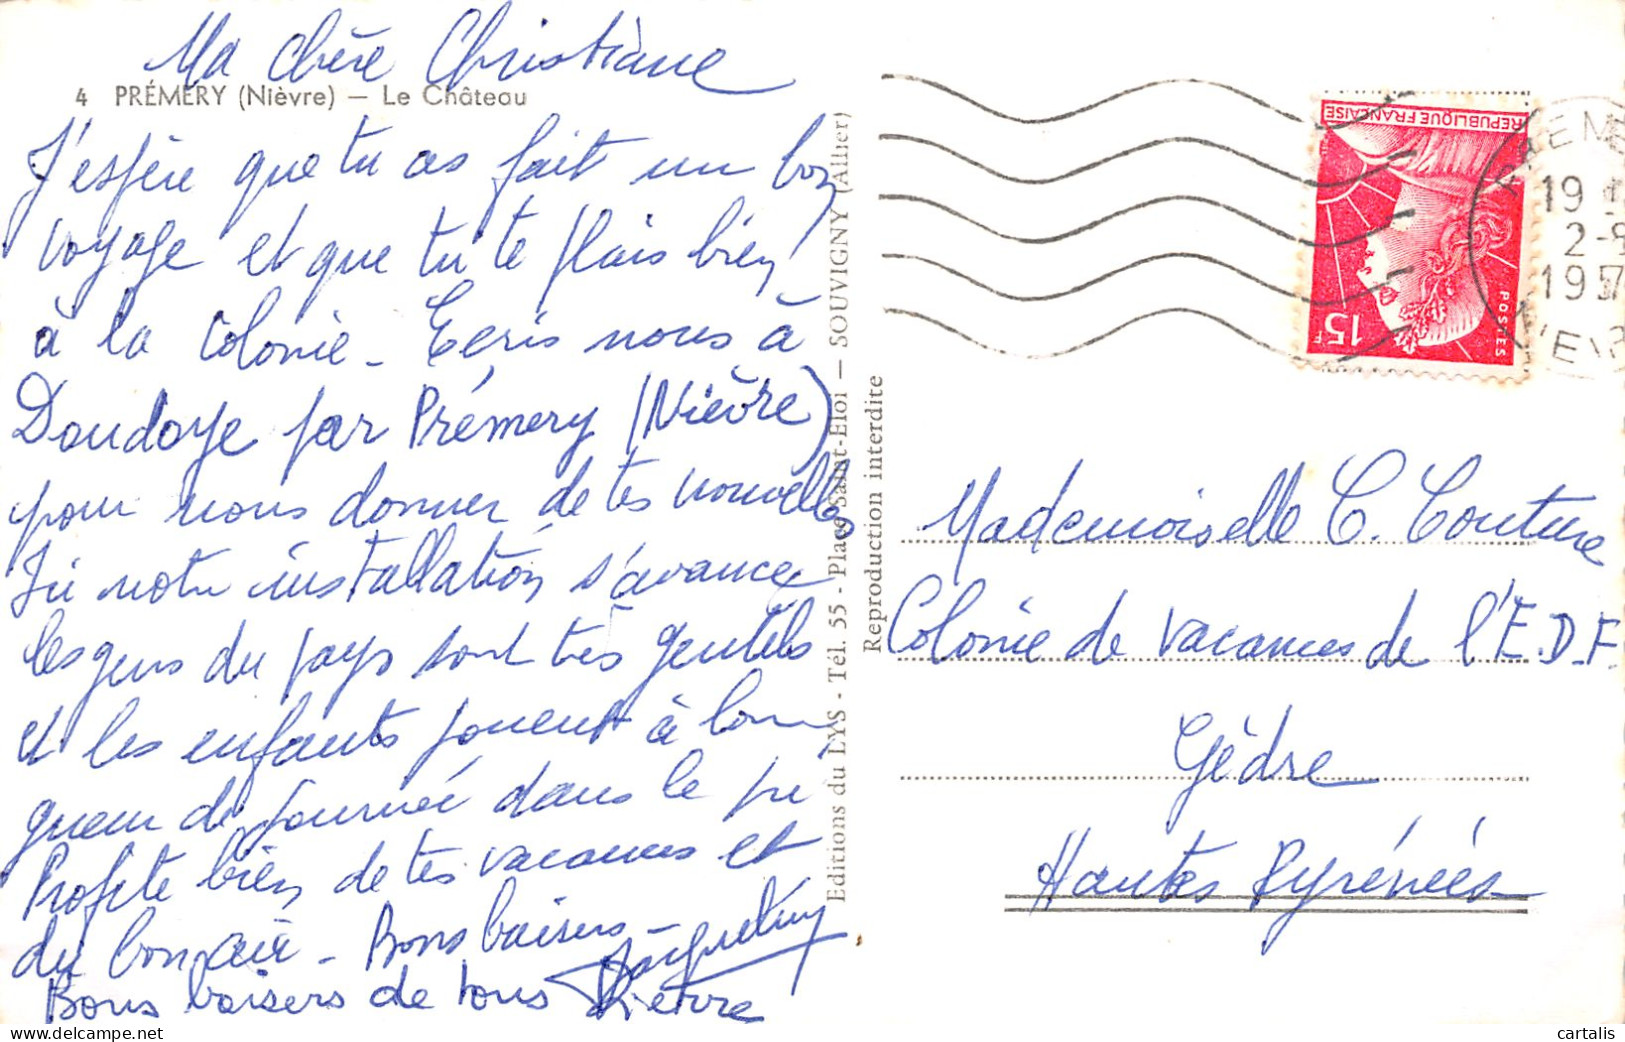 Ma chère Christiane
4 PRÉMERY (Nièvre) — Le Château
J'espère que tu as fait un bon
voyage et que tu te plais bien
à la colonie - Ecris nous à
Doudoye par Prémery (Nièvre)
pour nous donner de tes nouvelles
Ici notre installation s'avance
les gens du pays sont très gentils
et les enfants jouent à lon
gueur de journée dans le pré
Profite bien de tes vacances et
du bon air - Bons baisers -
Jacqueline
Bons baisers de tous Pierre
Editions du LYS - Tél. 55 - Place Saint-Eloi — SOUVIGNY (Allier)
Reproduction interdite
REPUBLIQUE FRANÇAISE
15F
POSTES
19
2-8
195
Mademoiselle C. Couture
Colonie de vacances de l'E.D.F.
Gèdre
Hautes Pyrénées
cartalis